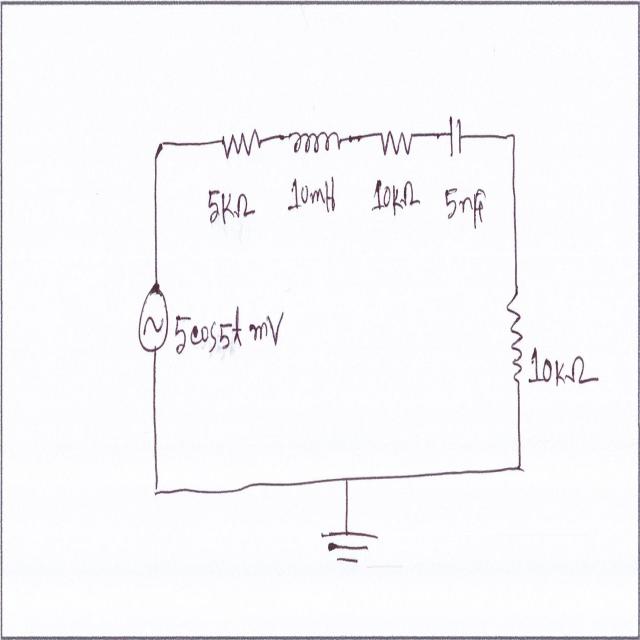 5KΩ 10mH 10KΩ 5nF
5cos5t mV
10KΩ